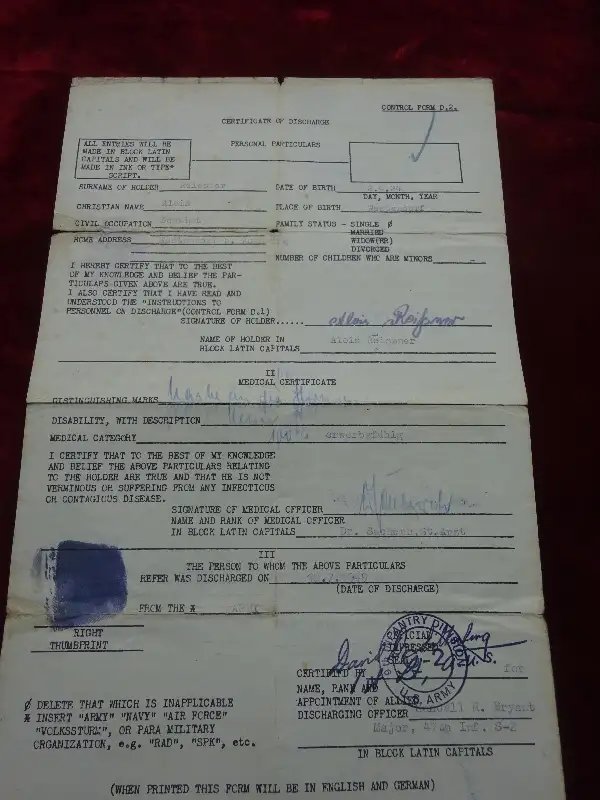 CONTROL FORM D.2.
CERTIFICATE OF DISCHARGE
ALL ENTRIES WILL BE
MADE IN BLOCK LATIN
CAPITALS AND WILL BE
MADE IN INK OR TYPE-
SCRIPT.
PERSONAL PARTICULARS
SURNAME OF HOLDER
DATE OF BIRTH
DAY, MONTH, YEAR
CHRISTIAN NAME Alois
PLACE OF BIRTH
CIVIL OCCUPATION
FAMILY STATUS - SINGLE Ø
MARRIED
WIDOW(ER)
DIVORCED
HOME ADDRESS
NUMBER OF CHILDREN WHO ARE MINORS -
I HEREBY CERTIFY THAT TO THE BEST
OF MY KNOWLEDGE AND BELIEF THE PAR-
TICULARS GIVEN ABOVE ARE TRUE.
I ALSO CERTIFY THAT I HAVE READ AND
UNDERSTOOD THE "INSTRUCTIONS TO
PERSONNEL ON DISCHARGE"(CONTROL FORM D.1)
SIGNATURE OF HOLDER...... Alois
NAME OF HOLDER IN
BLOCK LATIN CAPITALS Alois
II
MEDICAL CERTIFICATE
DISTINGUISHING MARKS
DISABILITY, WITH DESCRIPTION
MEDICAL CATEGORY erwerbsfähig
I CERTIFY THAT TO THE BEST OF MY KNOWLEDGE
AND BELIEF THE ABOVE PARTICULARS RELATING
TO THE HOLDER ARE TRUE AND THAT HE IS NOT
VERMINOUS OR SUFFERING FROM ANY INFECTIOUS
OR CONTAGIOUS DISEASE.
SIGNATURE OF MEDICAL OFFICER
NAME AND RANK OF MEDICAL OFFICER
IN BLOCK LATIN CAPITALS Dr.
III
THE PERSON TO WHOM THE ABOVE PARTICULARS
REFER WAS DISCHARGED ON
(DATE OF DISCHARGE)
FROM THE * ARMY
RIGHT
THUMBPRINT
OFFICIAL
IMPRESSED
SEAL
INFANTRY DIVISION
U.S. ARMY
CERTIFIED BY David for
NAME, RANK AND
APPOINTMENT OF ALLIED
DISCHARGING OFFICER R. Bryant
Major, 47th Inf. S-2
IN BLOCK LATIN CAPITALS
Ø DELETE THAT WHICH IS INAPPLICABLE
* INSERT "ARMY" "NAVY" "AIR FORCE"
"VOLKSSTURM", OR PARA MILITARY
ORGANIZATION, e.g. "RAD", "SPK", etc.
(WHEN PRINTED THIS FORM WILL BE IN ENGLISH AND GERMAN)